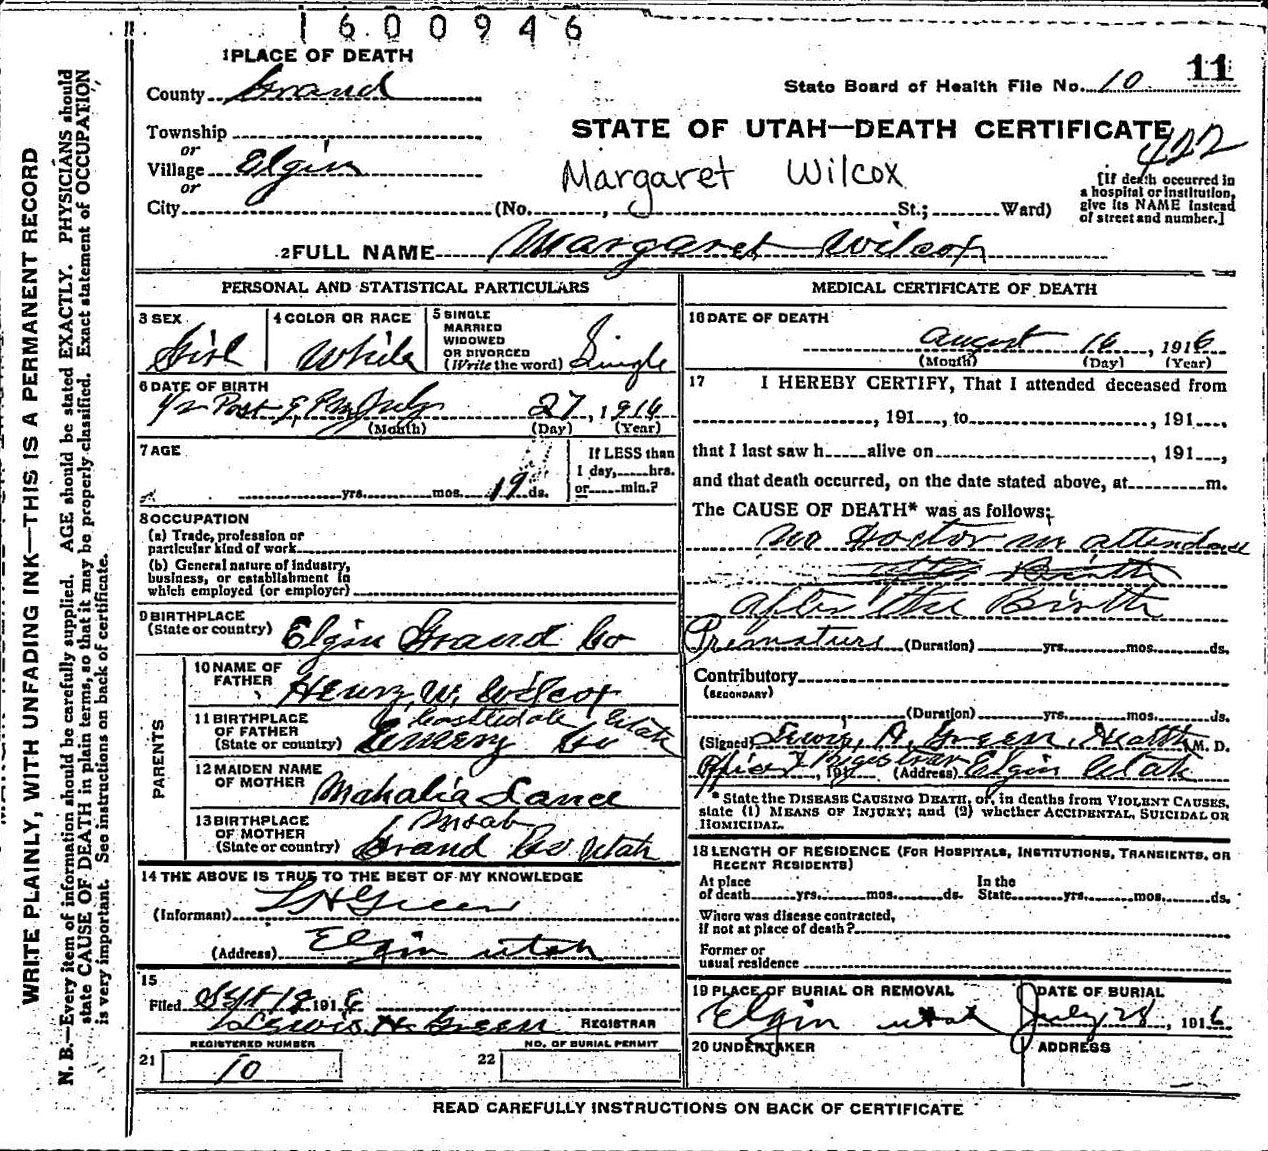 1600946
1 PLACE OF DEATH
11
County Grand
State Board of Health File No. 10
Township
or
STATE OF UTAH—DEATH CERTIFICATE
422
Village Elgin
or
Margaret Wilcox
[If death occurred in
a hospital or institution,
give its NAME instead
of street and number.]
City (No. , St.; Ward)
2 FULL NAME Margaret Wilcox
PERSONAL AND STATISTICAL PARTICULARS
3 SEX
Girl
4 COLOR OR RACE
White
5 SINGLE
MARRIED
WIDOWED
OR DIVORCED
(Write the word) Single
6 DATE OF BIRTH
1/2 Past PM July 27, 1916
(Month) (Day) (Year)
7 AGE
yrs. mos. 19 ds.
If LESS than
1 day, hrs.
or min.?
8 OCCUPATION
(a) Trade, profession or
particular kind of work
(b) General nature of industry,
business, or establishment in
which employed (or employer)
9 BIRTHPLACE
(State or country) Elgin Grand Co
PARENTS
10 NAME OF
FATHER Henry W. Wilcox
11 BIRTHPLACE
OF FATHER Castledale, Utah
(State or country) Emery Co
12 MAIDEN NAME
OF MOTHER Mahalia Lance
13 BIRTHPLACE
OF MOTHER Moab
(State or country) Grand Co Utah
14 THE ABOVE IS TRUE TO THE BEST OF MY KNOWLEDGE
(Informant) L H Green
(Address) Elgin Utah
15
Filed Sept 18 1916
Lewis H Green REGISTRAR
REGISTERED NUMBER
21 10
NO. OF BURIAL PERMIT
22
MEDICAL CERTIFICATE OF DEATH
16 DATE OF DEATH
August 16, 1916
(Month) (Day) (Year)
17 I HEREBY CERTIFY, That I attended deceased from
, 191 , to , 191 ,
that I last saw h alive on , 191 ,
and that death occurred, on the date stated above, at m.
The CAUSE OF DEATH* was as follows:
No Doctor in attendance
Birth
after the Birth
Premature (Duration) yrs. mos. ds.
Contributory
(SECONDARY)
(Duration) yrs. mos. ds.
(Signed) Lewis H. Green, Health M. D.
Officer & Registrar, 191 (Address) Elgin Utah
* State the DISEASE CAUSING DEATH, or, in deaths from VIOLENT CAUSES,
state (1) MEANS OF INJURY; and (2) whether ACCIDENTAL, SUICIDAL OR
HOMICIDAL.
18 LENGTH OF RESIDENCE (FOR HOSPITALS, INSTITUTIONS, TRANSIENTS, OR
RECENT RESIDENTS)
At place
of death yrs. mos. ds.
In the
State yrs. mos. ds.
Where was disease contracted,
if not at place of death?
Former or
usual residence
19 PLACE OF BURIAL OR REMOVAL
Elgin Utah
DATE OF BURIAL
July 28, 1916
20 UNDERTAKER
ADDRESS
READ CAREFULLY INSTRUCTIONS ON BACK OF CERTIFICATE
WRITE PLAINLY, WITH UNFADING INK—THIS IS A PERMANENT RECORD
N. B.—Every item of information should be carefully supplied. AGE should be stated EXACTLY. PHYSICIANS should
state CAUSE OF DEATH in plain terms, so that it may be properly classified. Exact statement of OCCUPATION
is very important. See instructions on back of certificate.